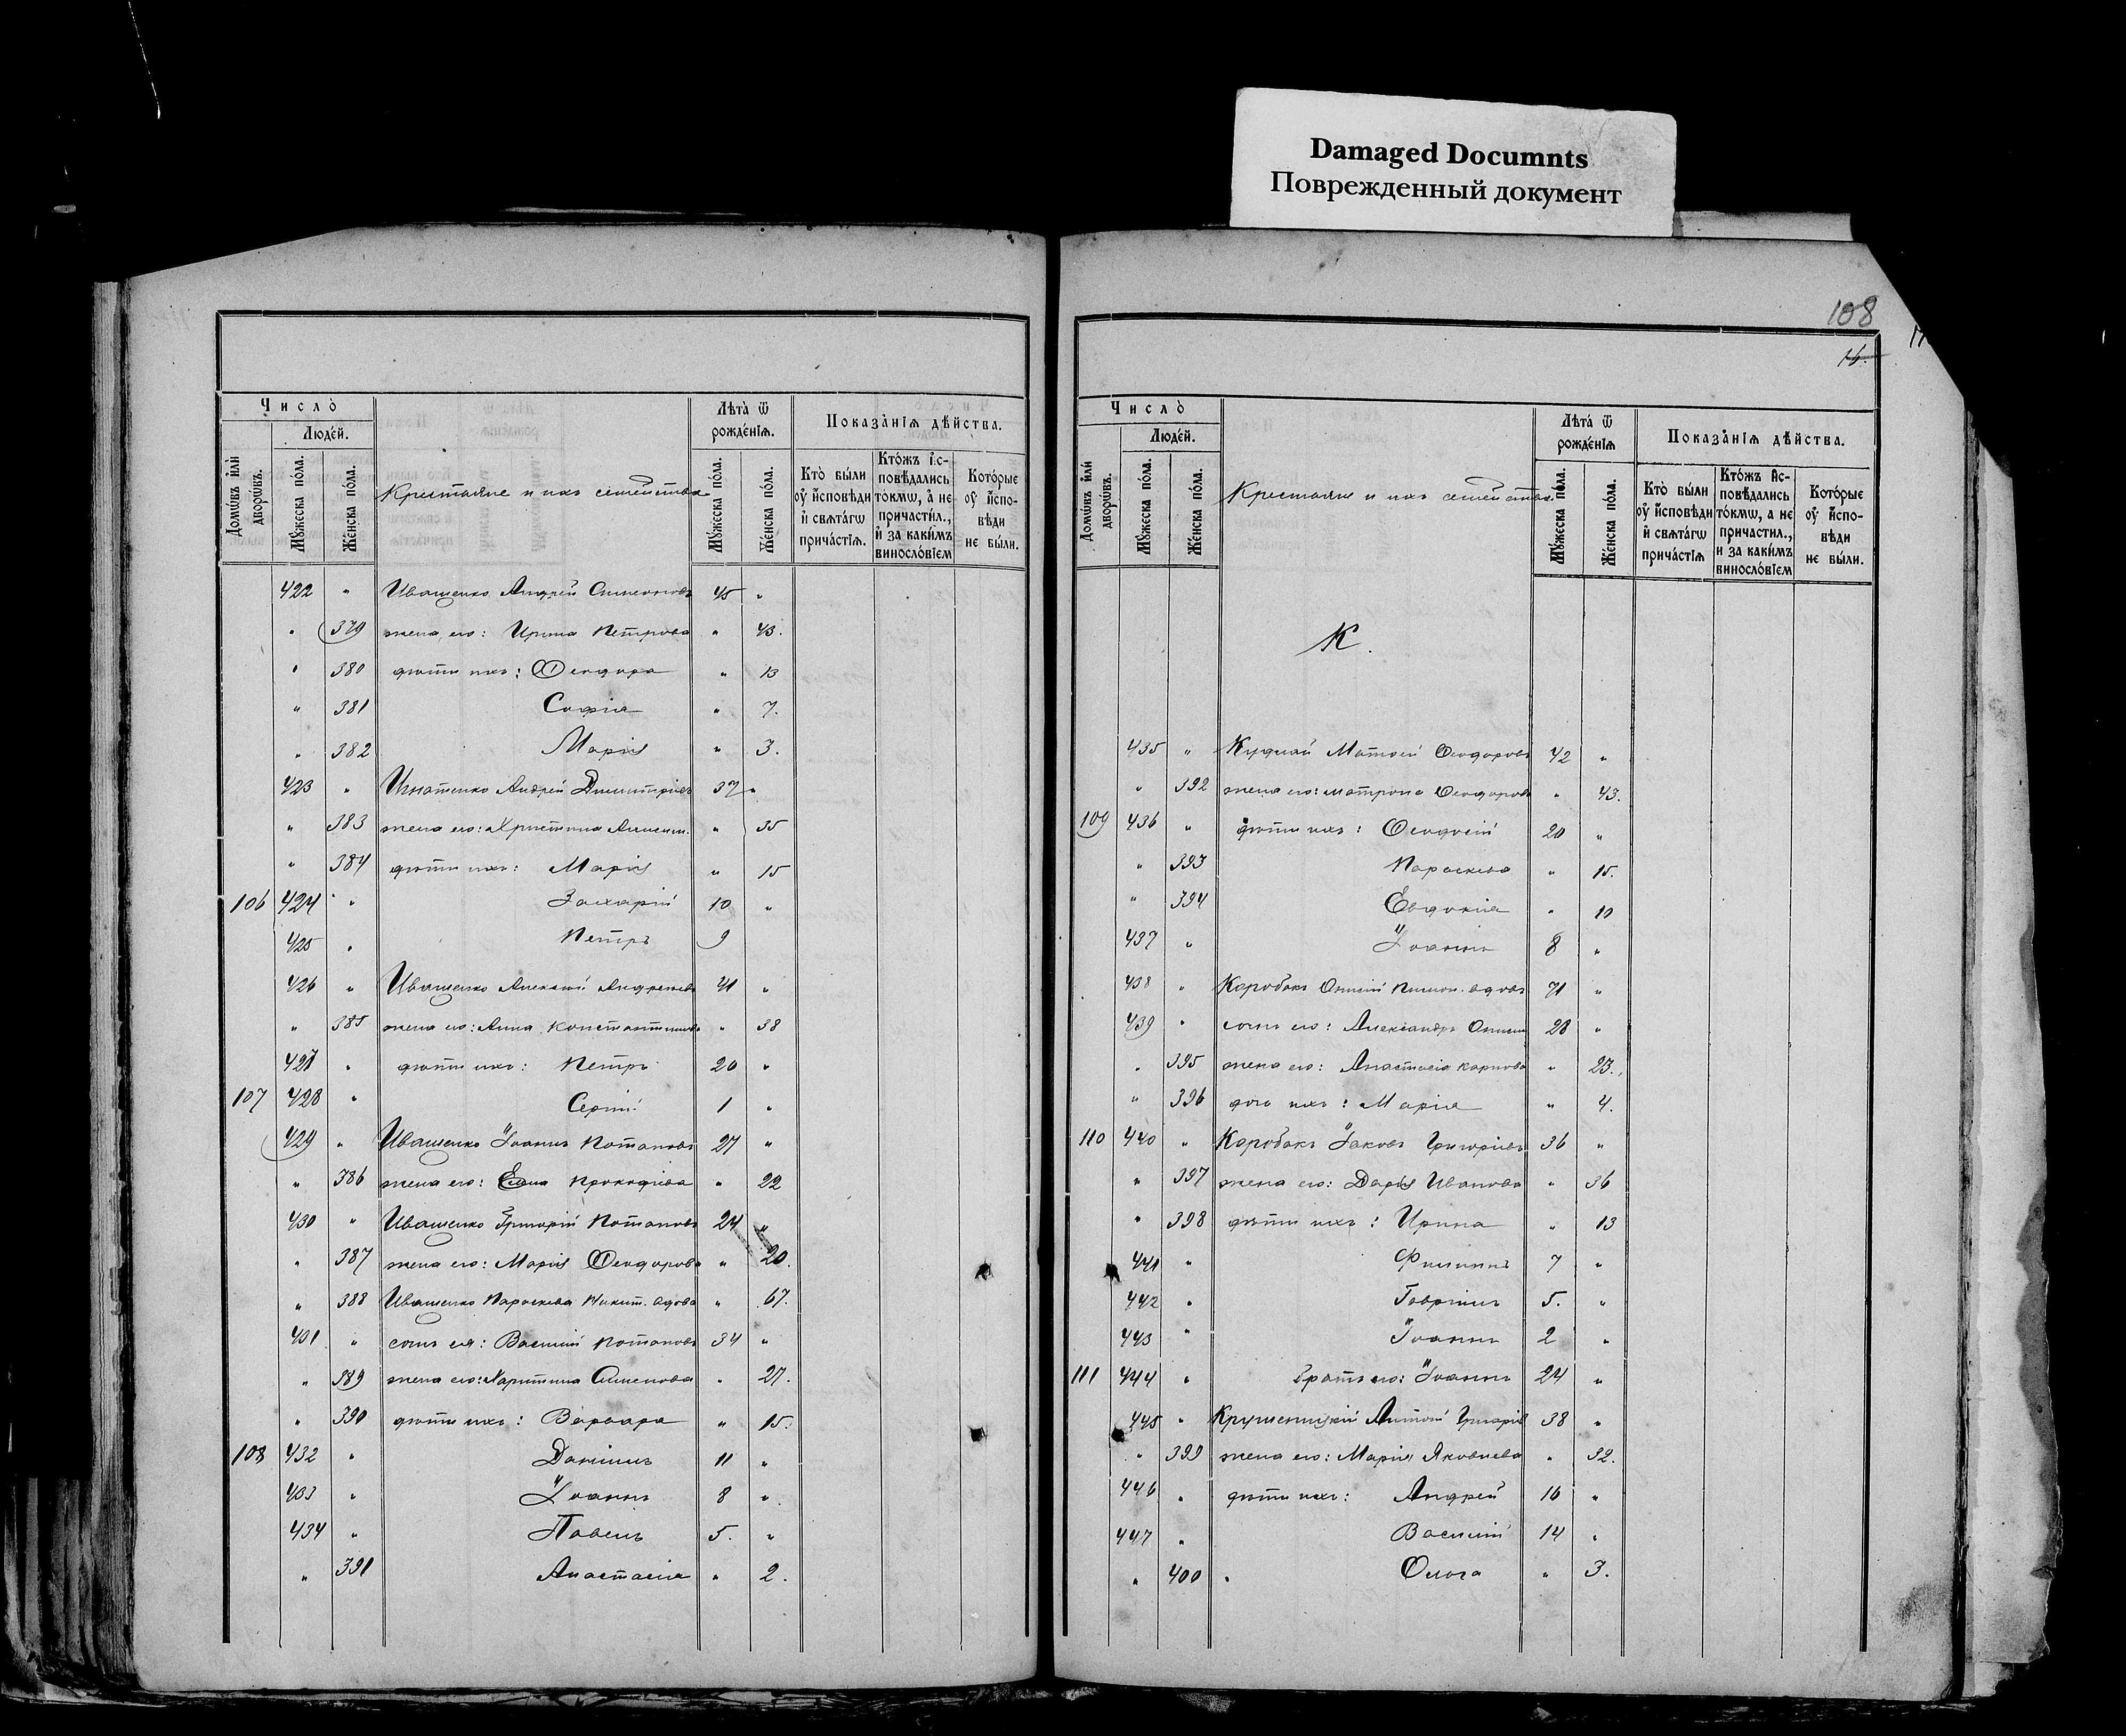 Damaged Documnts
Поврежденный документ
Число̀
Люде́й.
Домѡ́въ и҆лѝ дворѡ́въ.
Мꙋ́жеска по́ла.
Же́нска по́ла.
Крестьяне и ихъ семейства
Лѣта̀ ѿ рожде́нїѧ.
Мꙋ́жеска по́ла.
Же́нска по́ла.
Показа̑нїѧ дѣ́йства.
Кто̀ бы́ли оу҆ и҆сповѣди и҆ свѧта́гѡ прича́стїѧ.
Кто́жъ и҆с- повѣдались то́кмѡ, а҆ не причасти́л., и҆ за каки́мъ виносло́вїем
Кото́рые оу҆ и҆спо- вѣди не бы́ли.
422 " Иващенко Андрей Симеоновъ 45 "
" 379 жена его: Ирина Петрова " 43.
" 380 дѣти ихъ: Ѳеодора " 13
" 381 Софія " 7.
" 382 Марія " 3.
423 " Игнатенко Андрей Димитріевъ 37 "
" 383 жена его: Христина Алексѣев. " 35
" 384 дѣти ихъ: Марія " 15
106 424 " Захарій 10 "
425 " Петръ 9
426 " Иващенко Алексѣй Андреевъ 41 "
" 385 жена его: Анна Константинова " 38
427 " дѣти ихъ: Петръ 20 "
107 428 " Сергій 1 "
429 " Иващенко Іоаннъ Потаповъ 27 "
" 386 жена его: Елена Прокофіева " 22
430 " Иващенко Григорій Потаповъ 24 "
" 387 жена его: Марія Ѳеодорова " 20.
" 388 Иващенко Параскева Никит. вдова " 67.
431 " сынъ ея: Василій Потаповъ 34 "
" 389 жена его: Харитина Симеонова " 27.
" 390 дѣти ихъ: Варвара " 15.
108 432 " Даніилъ 11 "
433 " Іоаннъ 8 "
434 " Павелъ 5. "
" 391 Анастасія " 2.
108
16.
Число̀
Люде́й.
Домѡ́въ и҆лѝ дворѡ́въ.
Мꙋ́жеска по́ла.
Же́нска по́ла.
Крестьяне и ихъ семейства
Лѣта́ ѿ рожде́нїѧ
Мꙋ́жеска по́ла.
Же́нска по́ла.
Показа̑нїѧ дѣ́йства.
Кто̀ бы́ли оу҆ и҆сповѣди и҆ свѧта́гѡ прича́стїѧ
Кто́жъ и҆с- повѣдались то́кмѡ, а҆ не причастил., и за каки́мъ виносло́вїем
Кото́рые оу҆ и҆спо- вѣди не бы́ли.
К.
435 " Матѳей Ѳеодоровъ 42 "
" 392 жена его: Матрона Ѳеодорова " 43.
109 436 " дѣти ихъ: Ѳеодосій 20 "
" 393 Параскева " 15.
" 394 Евдокія " 10
437 " Іоаннъ 8 "
438 " Коробокъ Онисій вдовъ 71 "
439 " сынъ его: Александръ 28 "
" 395 жена его: Анастасія Карпова " 23.
" 396 дочь ихъ: Марія " 4.
110 440 " Коробокъ Іаковъ Григоріевъ 36 "
" 397 жена его: Дарія Иванова " 36
" 398 дѣти ихъ: Ирина " 13
441 " Филиппъ 7 "
442 " Гавріилъ 5. "
443 " Іоаннъ 2 "
111 444 " братъ его: Іоаннъ 24 "
445 " Антоній Григорів 38 "
" 399 жена его: Марія Яковлева " 32.
446 " дѣти ихъ: Андрей 16 "
447 " Василій 14 "
" 400 " Ольга " 3.